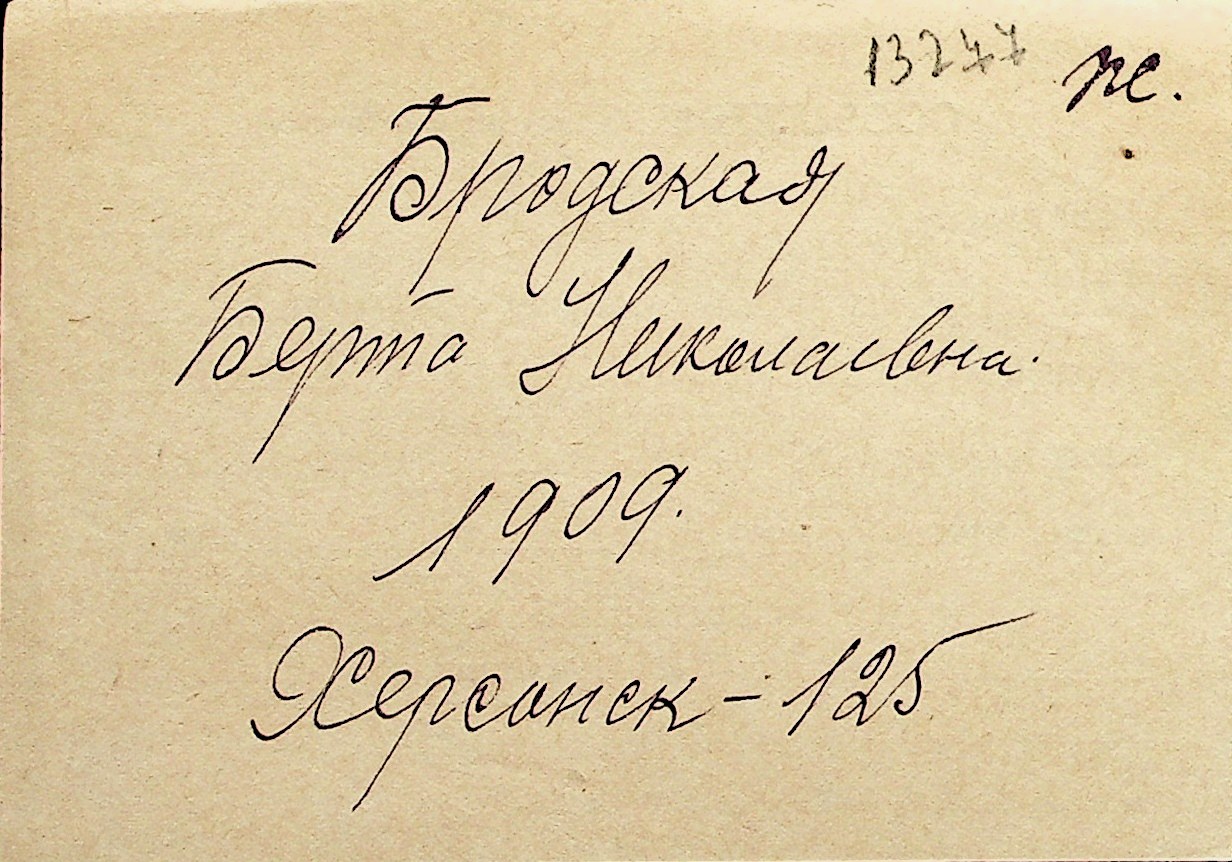 13277 ж.
Бродская
Берта Николаевна.
1909.
Херсонск - 125